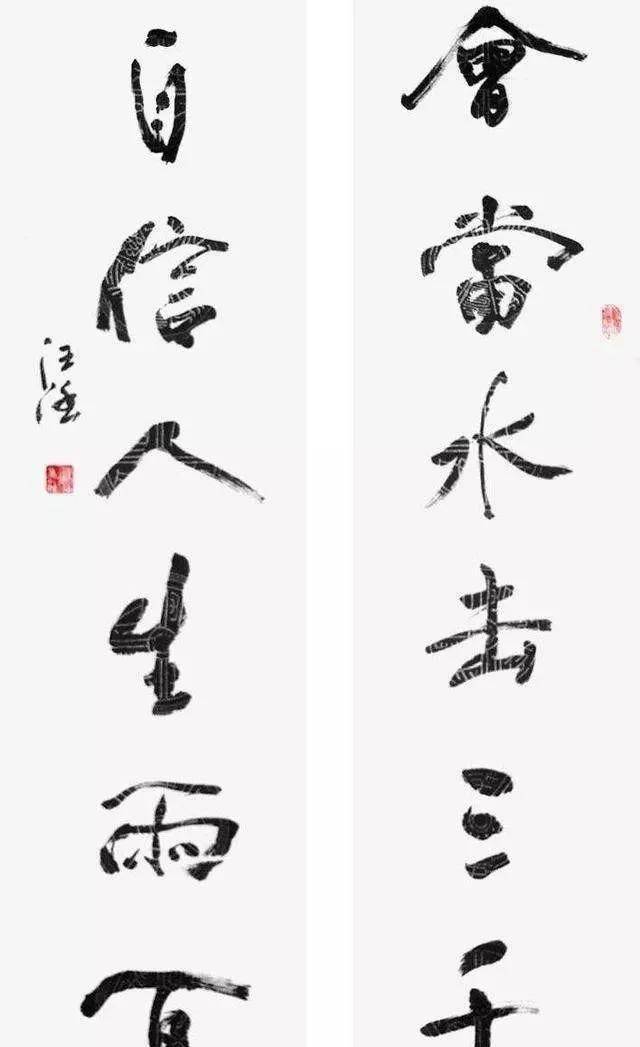 會當水击三千
自信人生雨百
汪涵